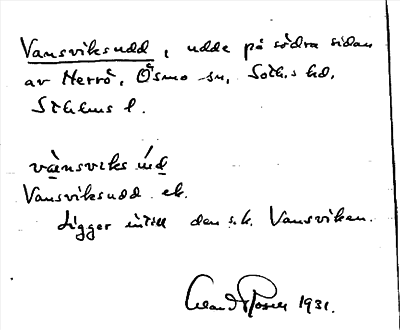 Vansviksudd, udde på södra sidan
av Herrö, Ösmo sn, Soth.s hd,
Sthlms l.
vànsviks ùd
Vansviksudd ek.
Ligger intill den s.k. Vansviken.
1931.